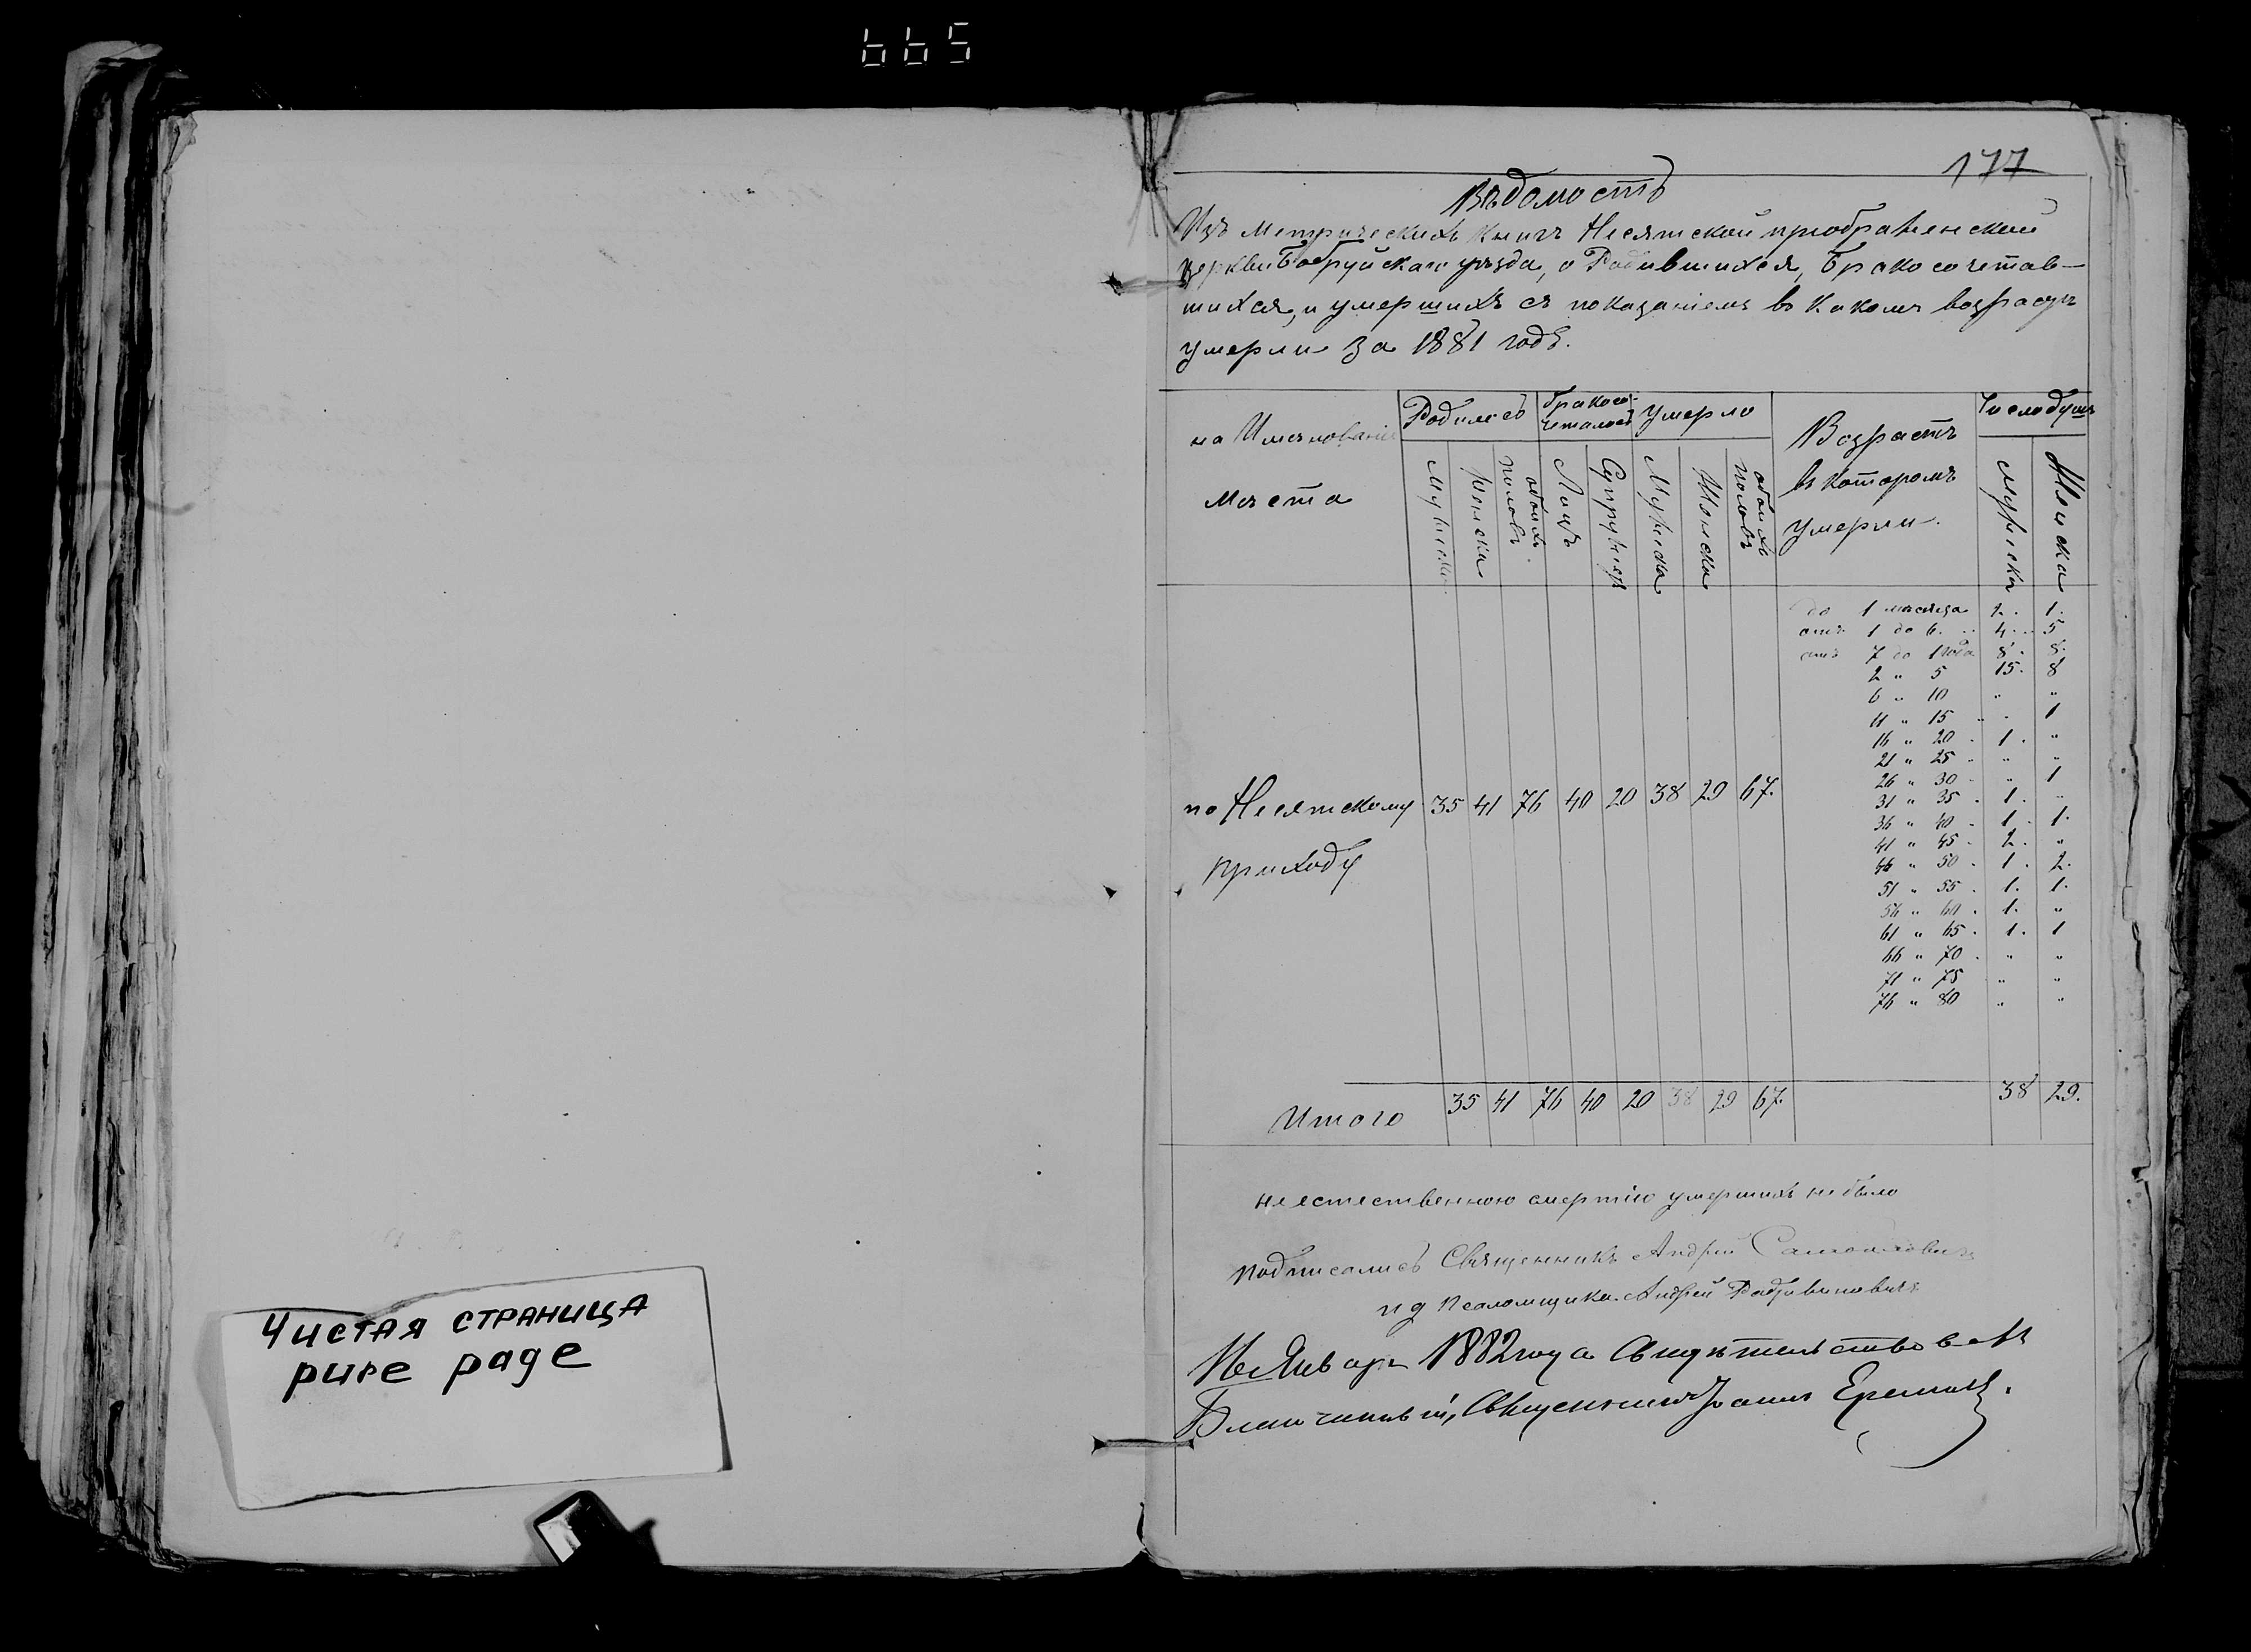 665
Чистая страница
pure page
177
Вѣдомость
Изъ Метрическихъ книгъ Несятской приображенской
церкви Бобруйскаго уѣзда, о Родившихся, Бракосочетав-
шихся, и умершихъ съ показаніемъ въ какомъ возрастѣ
умерли за 1881 годъ.
на Именованіе Мѣста
Родилось
Бракосо-
четалось
Умерло
Возрастъ
въ которомъ
умерли.
Число душъ
Мужеска
Женска
обоихъ половъ
Лицъ
Супружест
Мужеска
Женска
обоихъ половъ
Мужеска
Женска
до 1 мѣсяца 2. 1.
отъ 1 до 6. 4. 5
отъ 7 до 1 года 8. 8.
2 " 5 15. 8
6 " 10 " "
11 " 15 " 1
16 " 20 1. "
21 " 25 " "
26 " 30 " 1
31 " 35 1. "
36 " 40 1. 1.
41 " 45 2. "
46 " 50 1. 2.
51 " 55 1. 1.
56 " 60 1. "
61 " 65 1. 1
66 " 70 " "
71 " 75 " "
76 " 80 " "
по Несятскому 35 41 76 40 20 38 29 67.
приходу
Итого 35 41 76 40 20 38 29 67. 38 29.
неестественною смертію умершихъ не было
подписались Священникъ Андрей
и д Псаломщика Андрей
Января 1882 года Свидѣтельствовалъ
Благочинный, Священникъ Іоаннъ